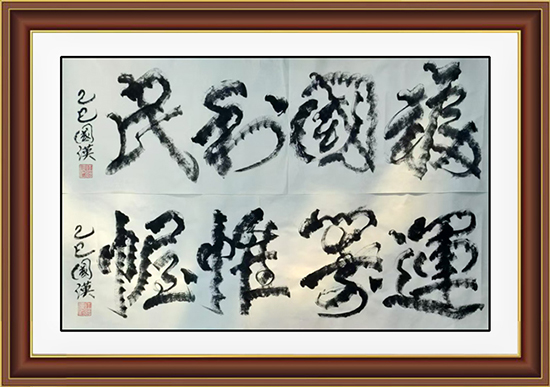 護國利民
乙巳國漢
運籌帷幄
乙巳國漢